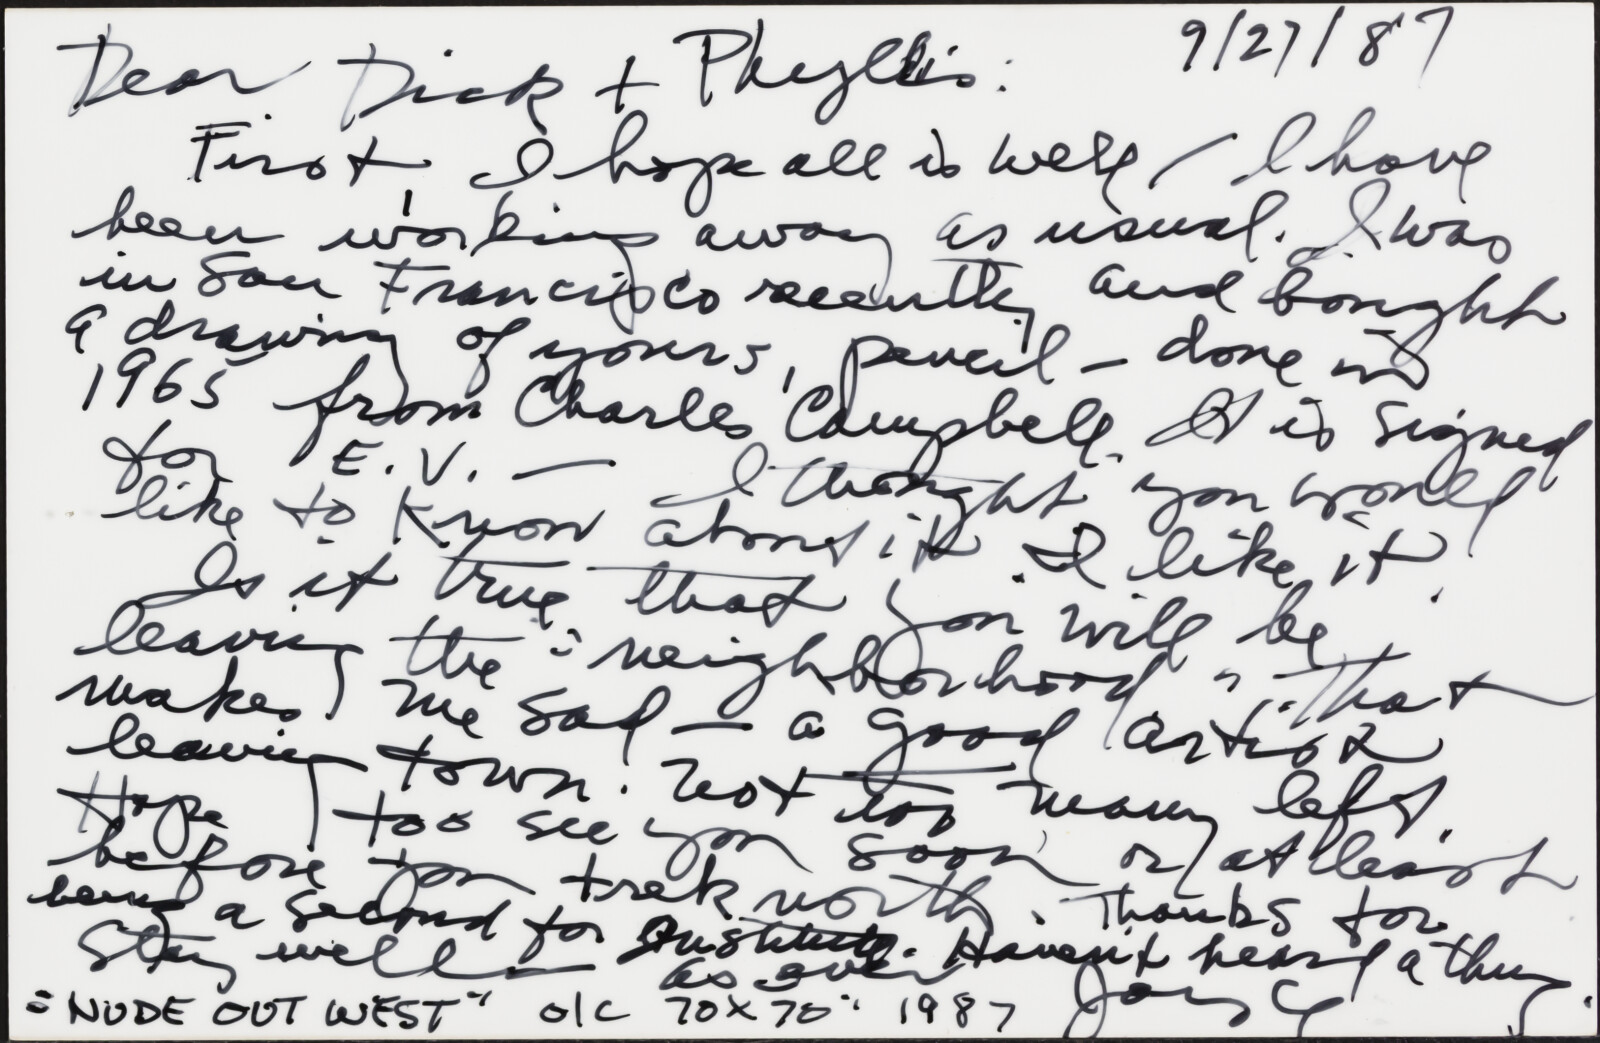 9/27/87
Dear Dick + Phyllis:
First, I hope all is well / I have
been working away as usual. I was
in San Francisco recently and bought
a drawing of yours, pencil – done in
1965 from Charles Campbell. It is signed
for E.V. — I thought you would
like to know about it. I like it.
Is it true that you will be
leaving the "neighborhood". That
makes me sad — a good artist
leaving town. Not too many left.
Hope too see you soon or at least
before you trek north. Thanks for
being a second for Institute. Haven't heard a thing.
Stay well — as ever
Joyce
"NUDE OUT WEST" o/c 70 x 70" 1987